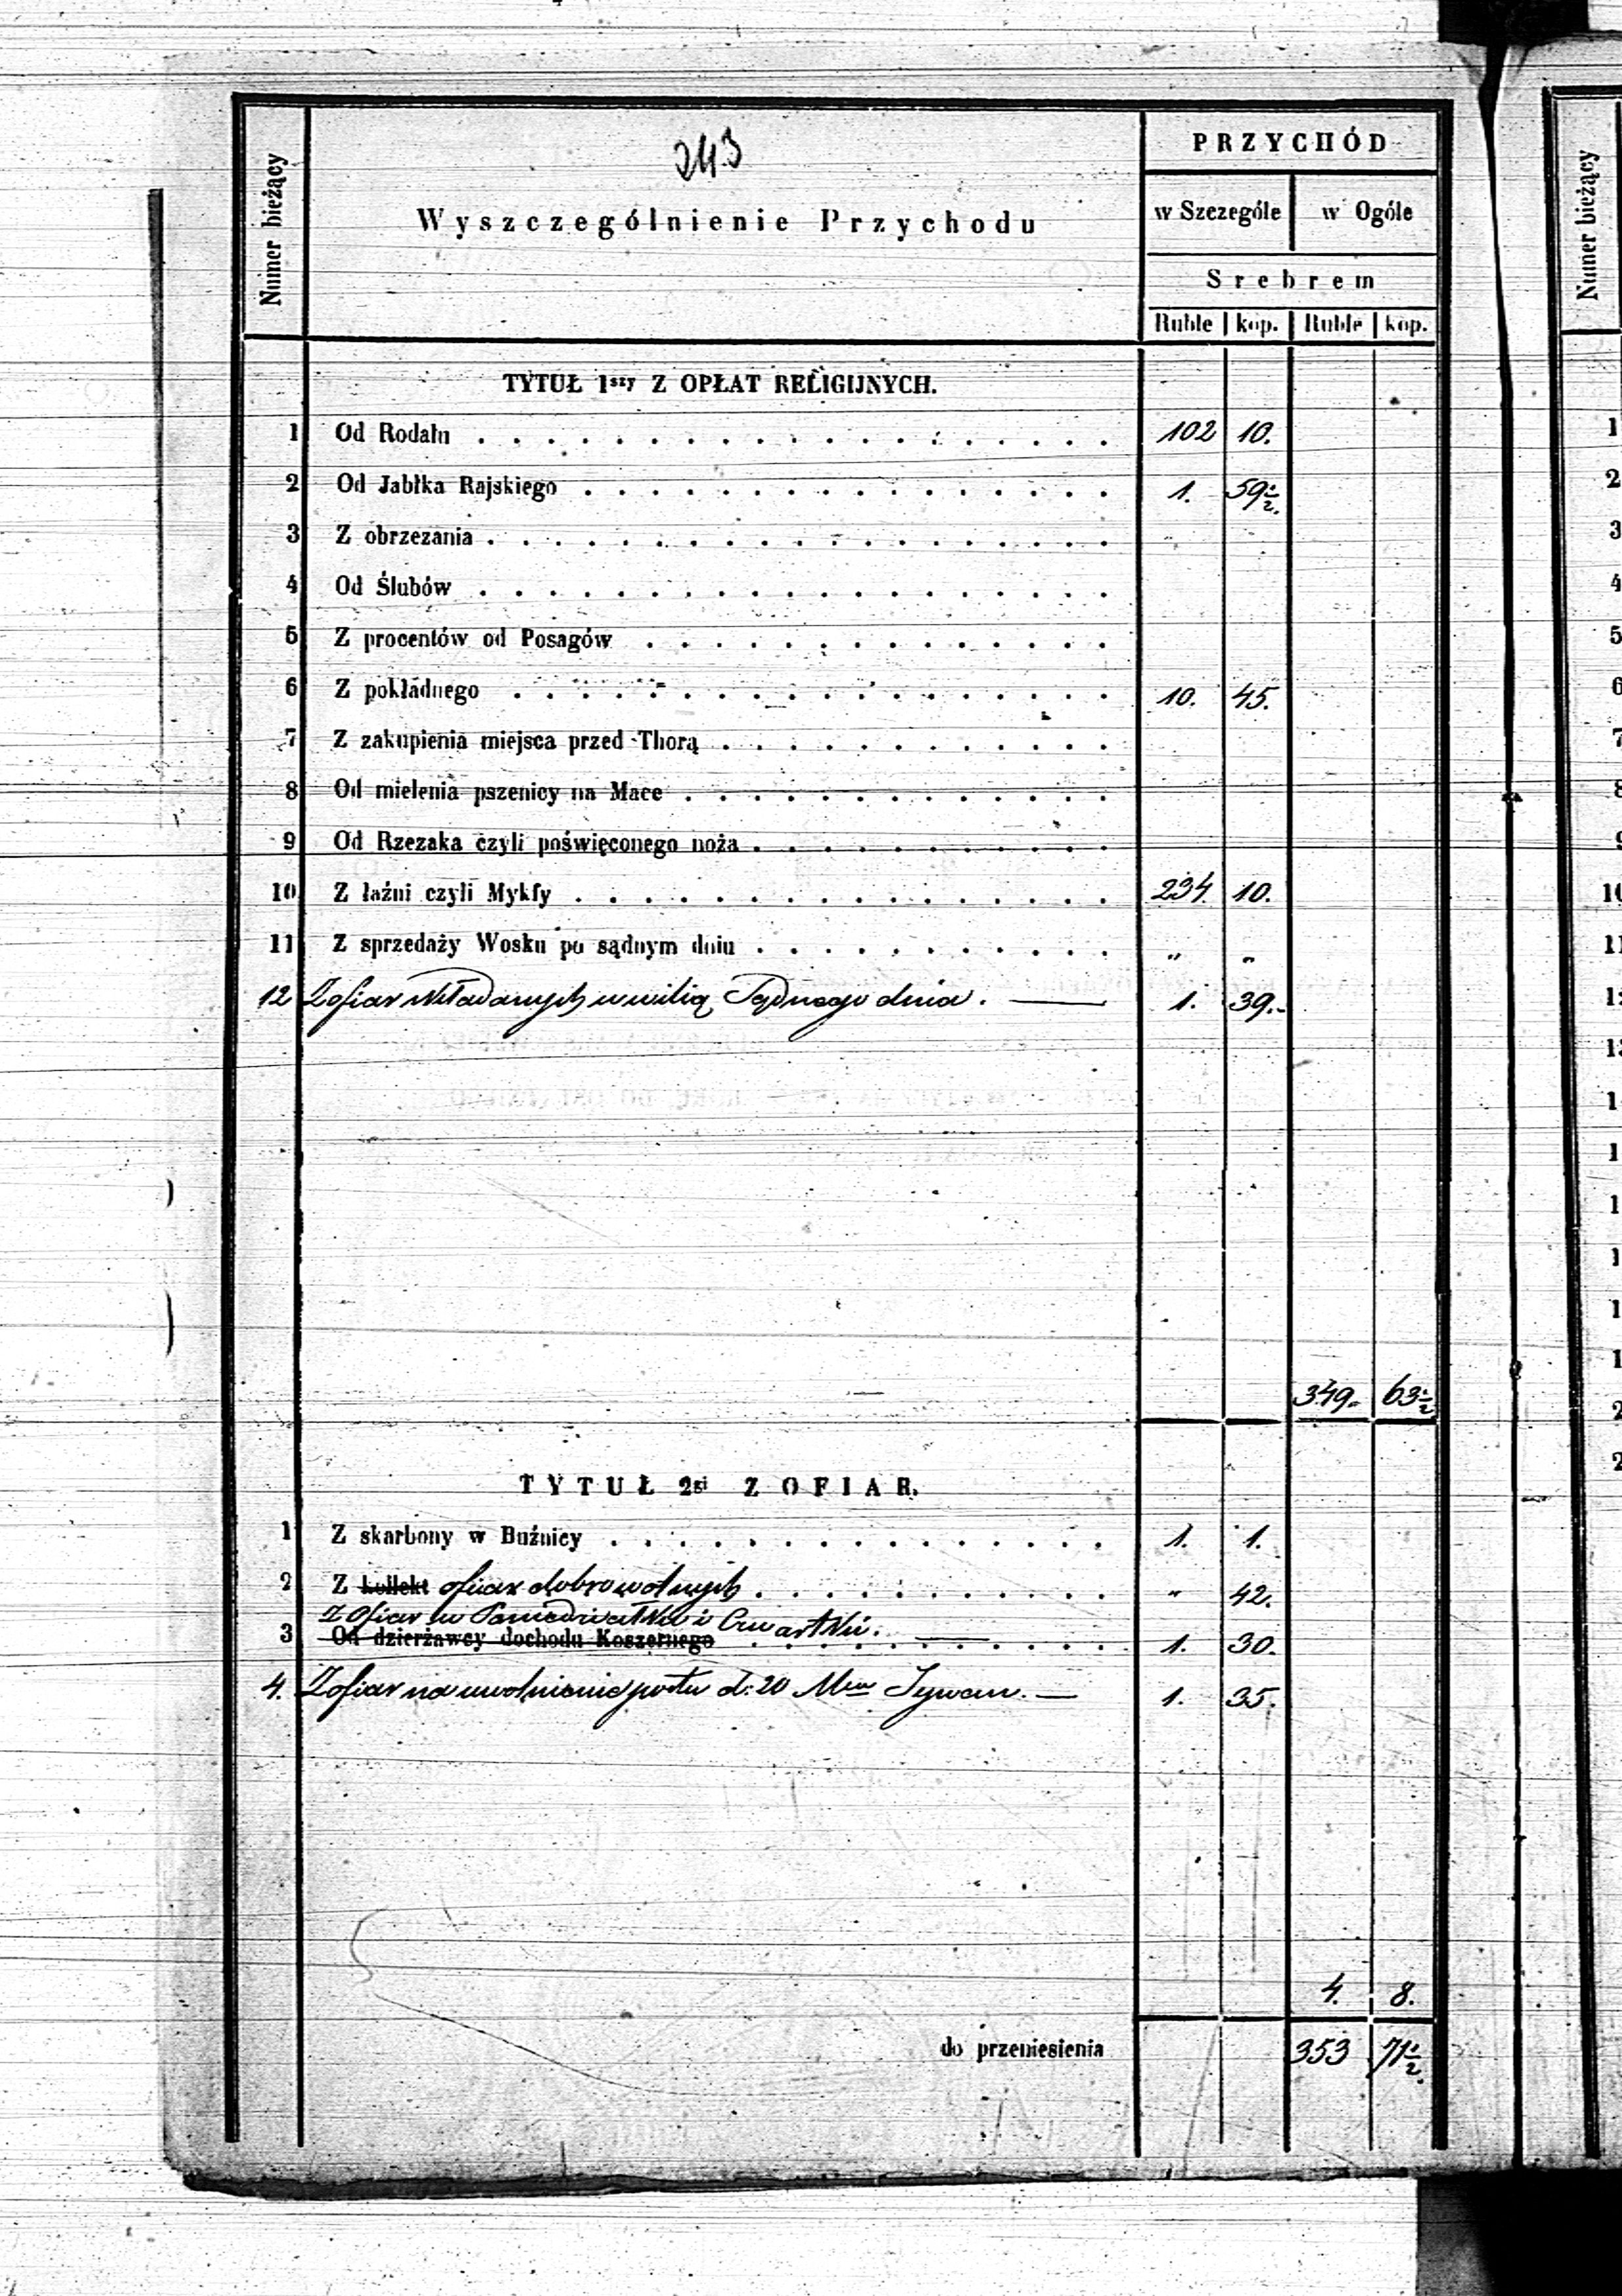 243
Numer bieżący
Wyszczególnienie Przychodu
PRZYCHÓD
w Szczególe w Ogóle
Srebrem
Ruble kop. Ruble kop.
TYTUŁ 1szy Z OPŁAT RELIGIJNYCH.
1 Od Rodału 102 10.
2 Od Jabłka Rajskiego 1. 59½.
3 Z obrzezania
4 Od Ślubów
5 Z procentów od Posagów
6 Z pokładnego 10. 45.
7 Z zakupienia miejsca przed Thorą
8 Od mielenia pszenicy na Mace
9 Od Rzezaka czyli poświęconego noża
10 Z łaźni czyli Mykfy 234. 10.
11 Z sprzedaży Wosku po sądnym dniu „ „
12 Z ofiar składanych w wilią Sądnego dnia. — 1. 39.
349. 63½
TYTUŁ 2gi Z OFIAR.
1 Z skarbony w Bużnicy 1. 1.
2 Z kollekt ofiar dobrowolnych „ 42.
Z Ofiar w Poniedziałki i Czwartki.
3 Od dzierżawcy dochodu Koszernego 1. 30.
4. Z ofiar na uwolnienie postu d. 20 Mca Sywan. — 1. 35.
4. 8.
do przeniesienia 353 71½.
Numer bieżący
1
2
3
4
5
6
7
8
9
10
11